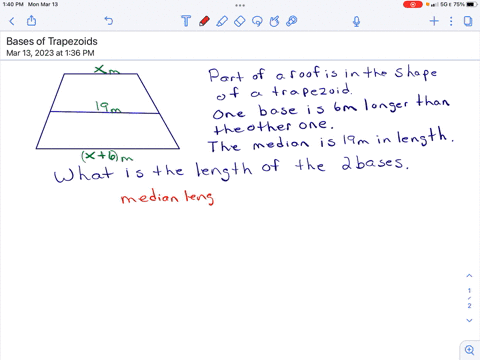 1:40 PM Mon Mar 13
5G E 75%
Bases of Trapezoids
Mar 13, 2023 at 1:36 PM
x m
19m
(x+6)m
Part of a roof is in the shape
of a trapezoid.
One base is 6m longer than
the other one.
The median is 19m in length.
What is the length of the 2 bases.
median leng
1
2